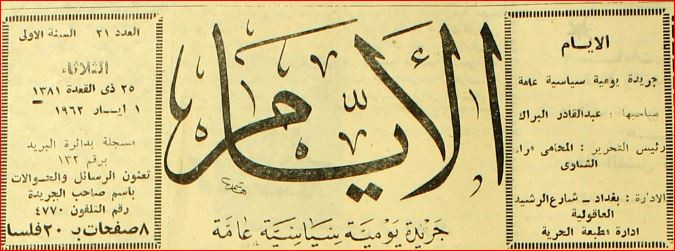 الايام
جريدة يومية سياسية عامة
صاحبها : عبدالقادر البراك
رئيس التحرير : المحامي
الشاوى
الادارة : بغداد ــ شارع الرشيد
العاقولية
ادارة مطبعة الحرية
الأيام
جريدة يومية سياسية عامة
العدد ٢١ السنة الاولى
الثلاثاء
٢٥ ذى القعدة ١٣٨١
١ ايــار ١٩٦٢
مسجلة بدائرة البريد
برقم ١٣٢
تعنون الرسائل والحوالات
باسم صاحب الجريدة
رقم التلفون ٤٧٧٠
٨ صفحات بـ ٢٠ فلسا